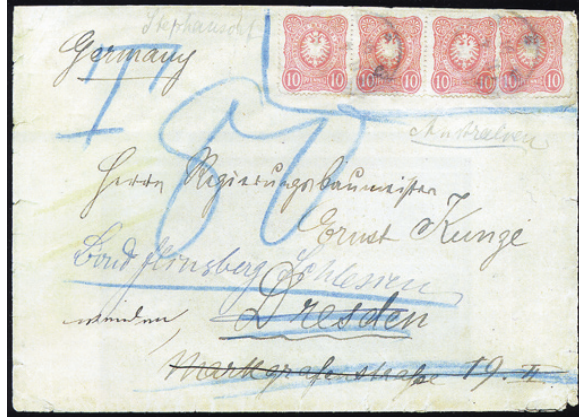 Stephansort
Germany
10 10 10 10 10 10 10 10
T
80
Australien
Herrn Regierungsbaumeister
Ernst Kunze
Bad Flinsberg Schlesien
Dresden
Markgrafenstraße 19. II